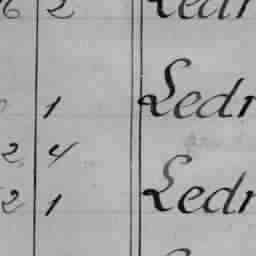 6 2 Ledr
1 Ledr
2 4
2 1 Ledr